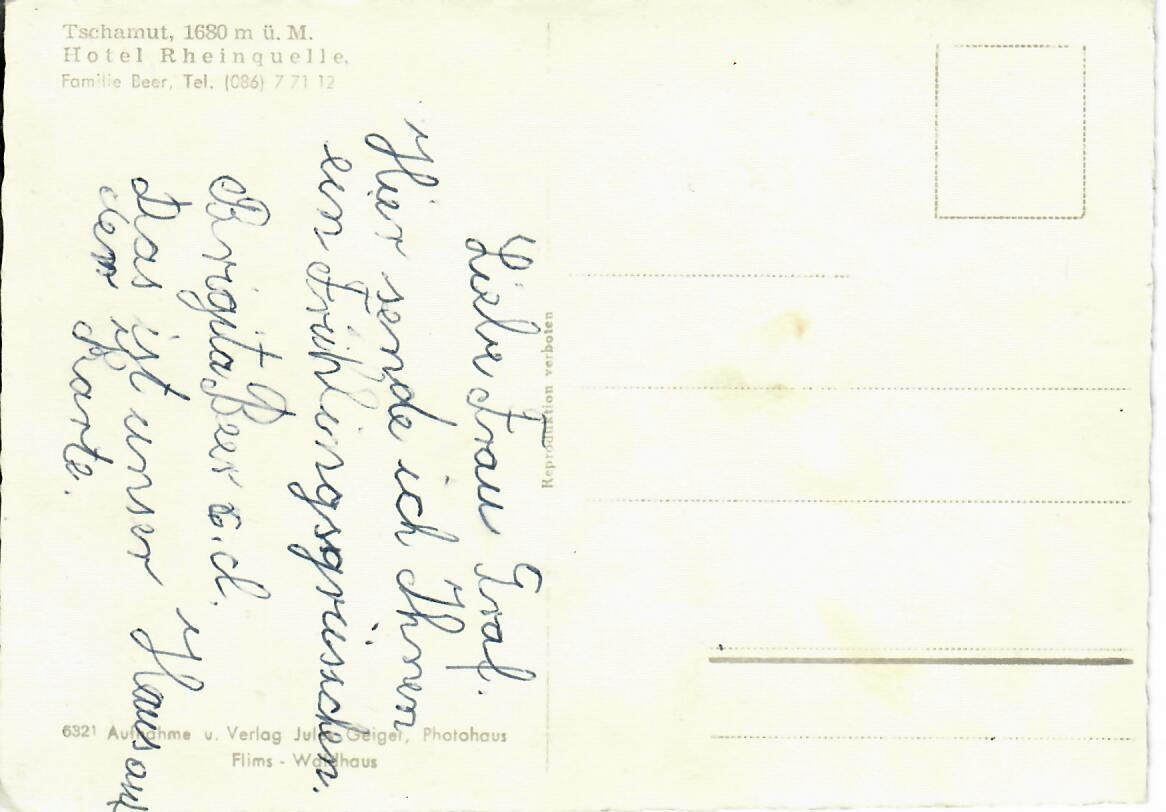 Tschamut, 1680 m ü. M.
Hotel Rheinquelle.
Familie Beer, Tel. (086) 7 71 12
Liebe Frau Graf.
Hier sende ich Ihnen
ein Frühlingsgrüsschen.
Brigita Beer
Das ist unser Haus auf
der Karte.
Reproduktion verboten
6321 Aufnahme u. Verlag Jules Geiger, Photohaus
Flims - Waldhaus